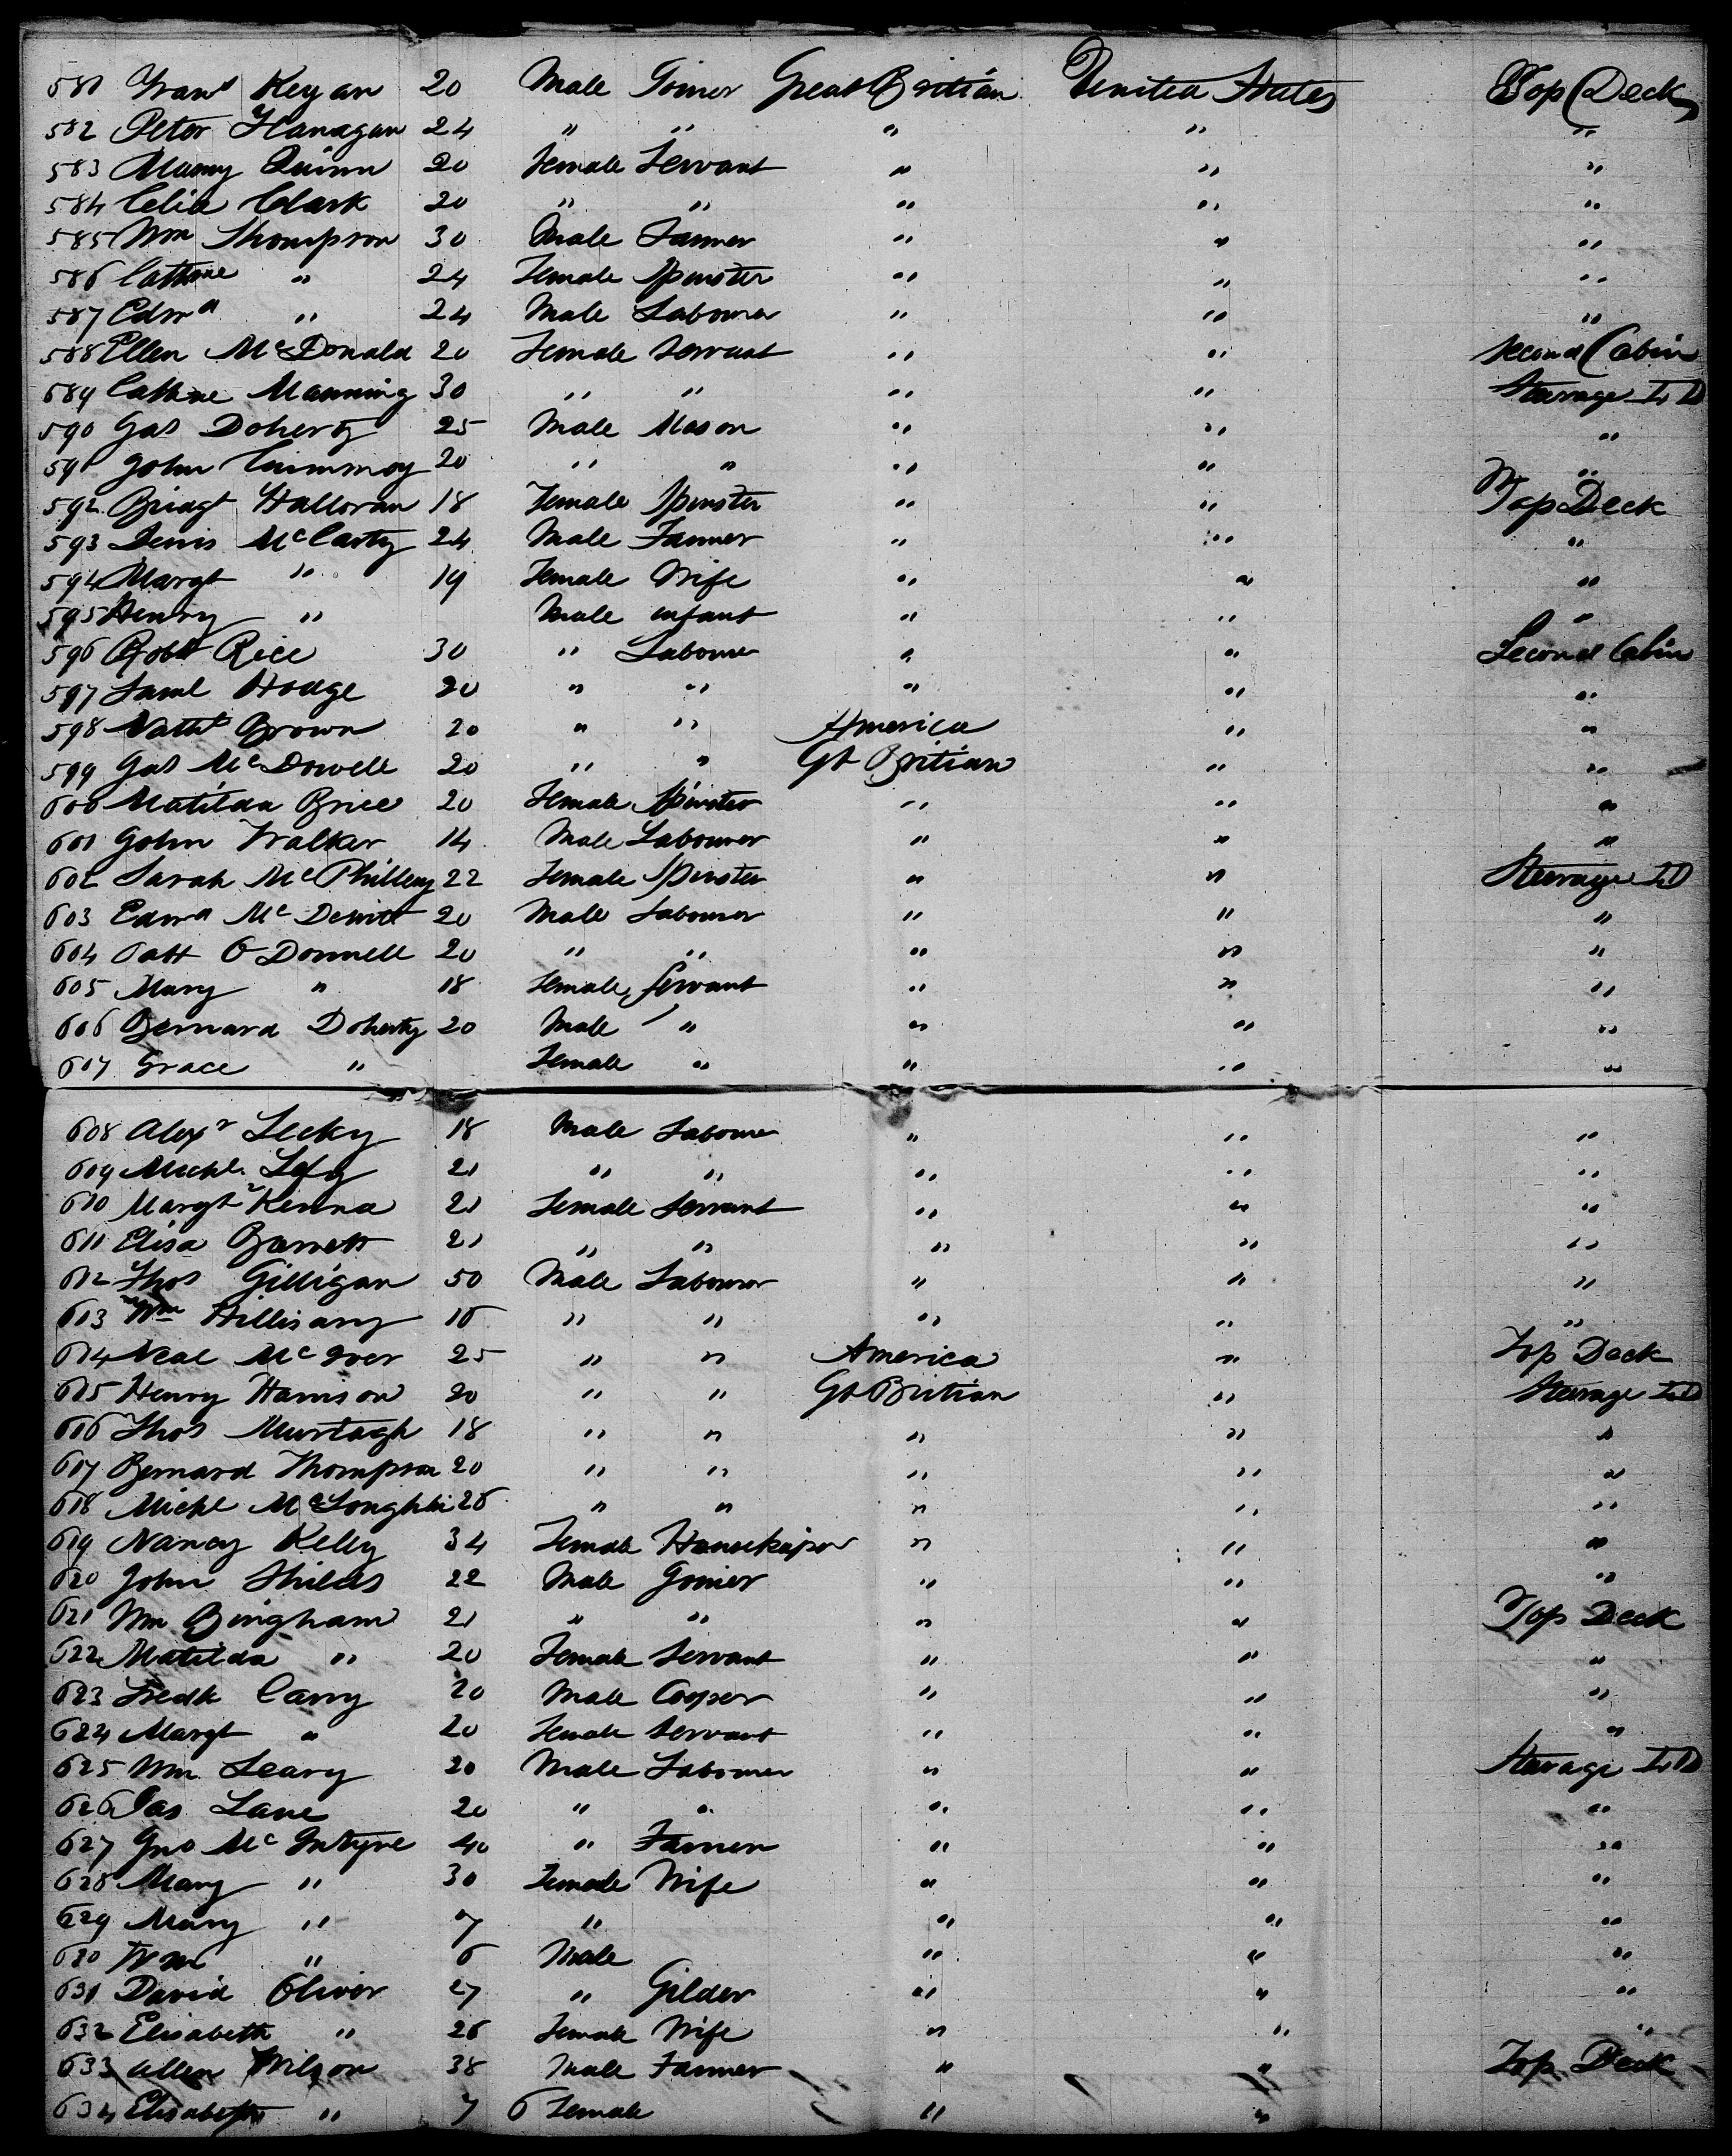 581 Frans Keyan 20 Male Joiner Great Britian United States Top Deck
582 Peter Flanagan 24 " " " " "
583 Mamy Quinn 20 Female Servant " " "
584 Celia Clark 20 " " " " "
585 Wm Thompson 30 Male Farmer " " "
586 Cathne " 24 Female Spinster " " "
587 Edwd " 24 Male Labourer " " "
588 Ellen McDonald 20 Female Servant " " Second Cabin
589 Cathne Manning 30 " " " " Steerage L D
590 Jas Doherty 25 Male Mason " " "
591 John 20 " " " " "
592 Bridgt Halloran 18 Female Spinster " " Top Deck
593 Denis McCarty 24 Male Farmer " " "
594 Margt " 19 Female Wife " " "
595 Henry " Male infant " " "
596 Robt Rice 30 " Labourer " " Second Cabin
597 Saml Hodge 20 " " " " "
598 Nathl Brown 20 " " America " "
599 Jas McDowell 20 " " Gt Britian " "
600 Matilda Brice 20 Female Spinster " " "
601 John Walker 14 Male Labourer " " "
602 Sarah McPhillemy 22 Female Spinster " " Steerage L D
603 Edwd McDevitt 20 Male Labourer " " "
604 Patt O Donnell 20 " " " " "
605 Mary " 18 Female Servant " " "
606 Bernard Doherty 20 Male " " " "
607 Grace " Female " " " "
608 Alexr Lecky 18 Male Labourer " " "
609 Michl 21 " " " " "
610 Margt Kenna 21 Female Servant " " "
611 Elisa Barrett 21 " " " " "
612 Thos Gilligan 50 Male Labourer " " "
613 Wm 16 " " " " "
614 Neal McIver 25 " " America " Top Deck
615 Henry Harrison 20 " " Gt Britian " Steerage L D
616 Thos Murtagh 18 " " " " "
617 Bernard Thompson 20 " " " " "
618 Michl McLoughlin 26 " " " " "
619 Nancy Kelly 34 Female Housekeeper " " "
620 John Shields 22 Male Joiner " " "
621 Wm Bingham 21 " " " " Top Deck
622 Matilda " 20 Female Servant " " "
623 Fredk Carry 20 Male Cooper " " "
624 Margt " 20 Female Servant " " "
625 Wm Leary 20 Male Labourer " " Steerage L D
626 Jas Lane 20 " " " " "
627 Jno McIntyre 40 " Farmer " " "
628 Mary " 30 Female Wife " " "
629 Mary " 7 " " " "
630 Wm " 6 Male " " "
631 David Oliver 27 " Gilder " " "
632 Elisabeth " 26 Female Wife " " "
633 Allen Wilson 38 Male Farmer " " Top Deck
634 Elisabeth " 7 6 Female " "